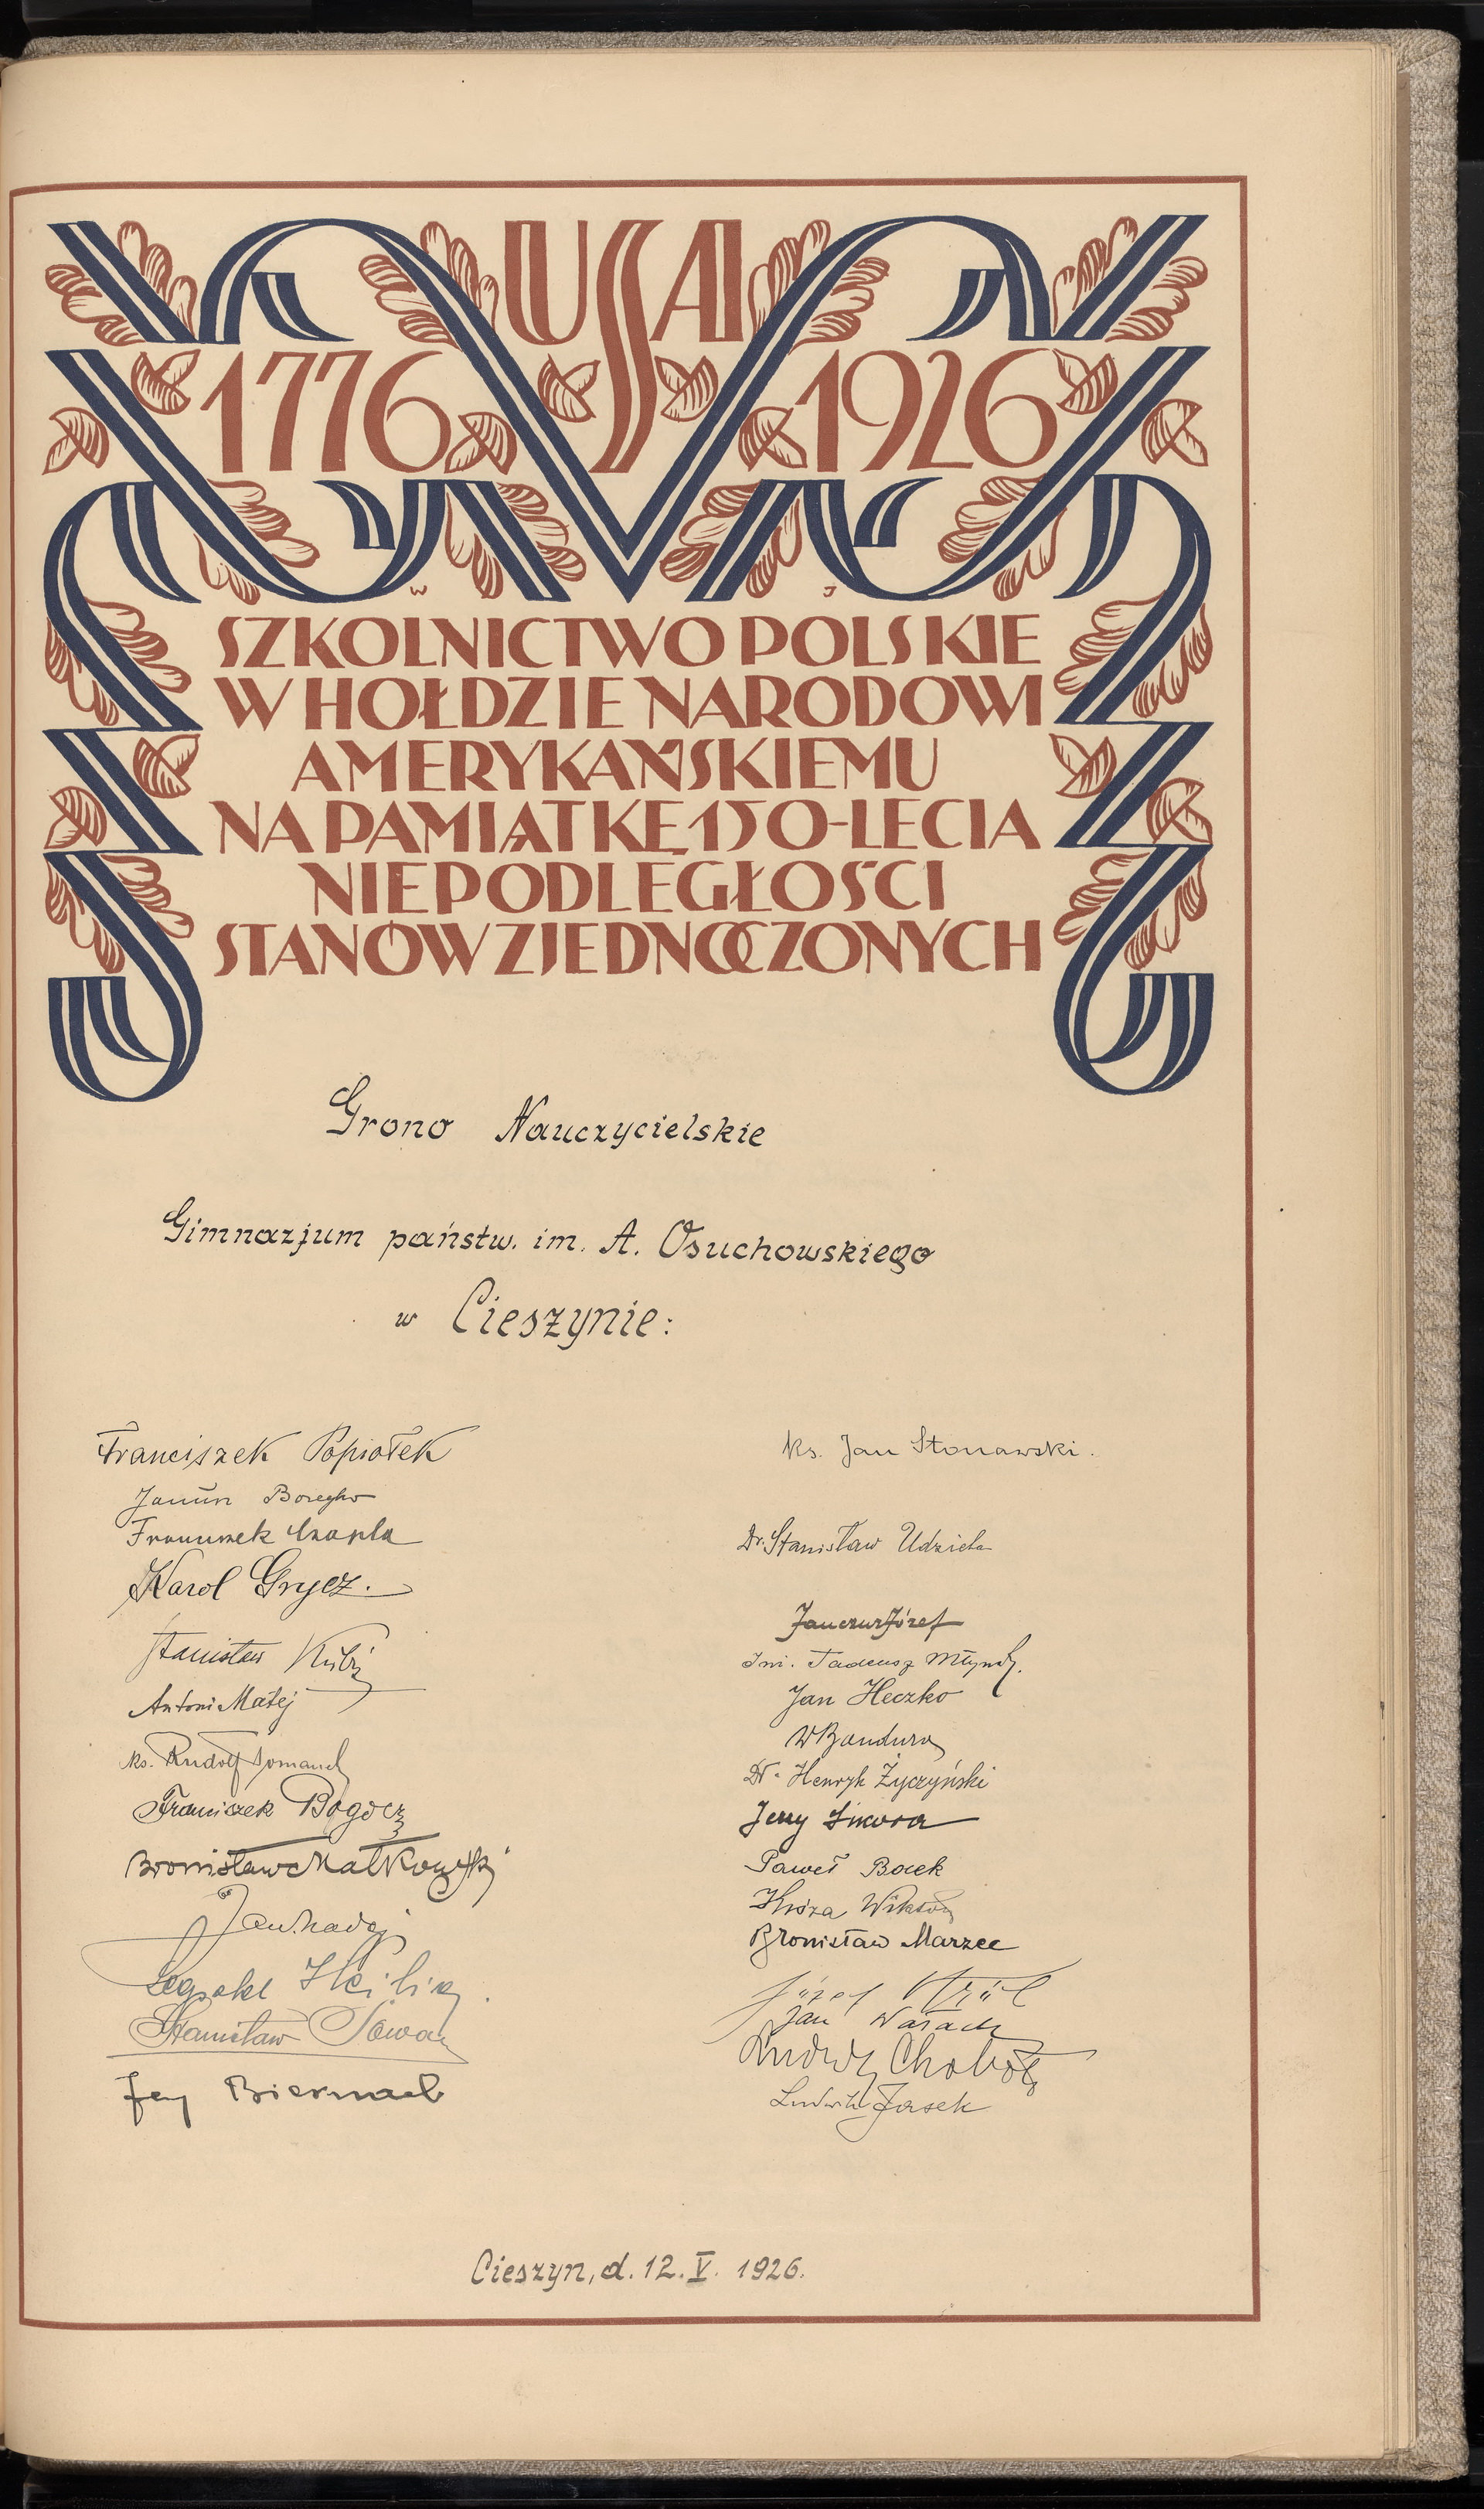 USA
1776 1926
W J
SZKOLNICTWO POLSKIE
W HOŁDZIE NARODOWI
AMERYKAŃSKIEMU
NA PAMIĄTKĘ 150-LECIA
NIEPODLEGŁOŚCI
STANÓW ZJEDNOCZONYCH
Grono Nauczycielskie
Gimnazjum państw. im. A. Osuchowskiego
w Cieszynie:
Franciszek Popiołek
Franciszek Czapla
Karol Grycz.
Stanisław
Antoni Matej
ks. Rudolf Tomanek
Franciszek Bogocz
Bronisław Małkowski
Stanisław
Jerzy Biernacki
ks. Jan Stonawski.
Dr. Stanisław Udziela
Janczur Józef
Inż. Tadeusz
Jan Heczko
W Bandura
Dr. Henryk Życzyński
Jerzy Sikora
Paweł Bocek
Wiktor
Bronisław Marzec
Józef Król
Jan Wałach
Ludwik Chobot
Ludwik Jasek
Cieszyn, d. 12. V. 1926.